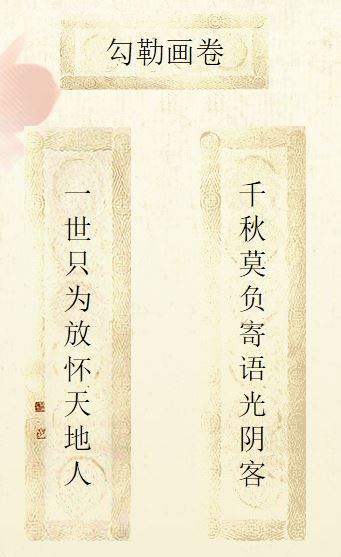 勾勒画卷
千秋莫负寄语光阴客
一世只为放怀天地人